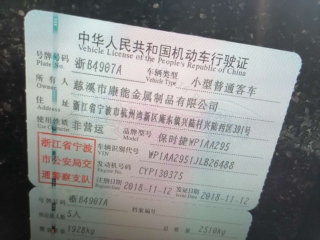 中华人民共和国机动车行驶证
Vehicle License of the People's Republic of China
号牌号码 浙B4907A 车辆类型 小型普通客车
Plate No. Vehicle Type
所有人 慈溪市康能金属制品有限公司
Owner
住址 浙江省宁波市杭州湾新区庵东镇兴陆村兴陆西区391号
Address
使用性质 非营运 品牌型号 保时捷WP1AA295
Use Character Model
浙江省宁波市公安局交通警察支队
车辆识别代号 WP1AA2951JLB26488
VIN
发动机号码 CYP130375
Engine No.
注册日期 2018-11-12 发证日期 2018-11-12
Register Date Issue Date
浙B4907A 档案编号
5人 2510kg
1928kg